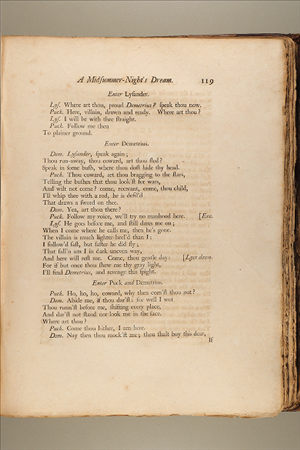 A Midsummer-Night's Dream. 119
Enter Lysander.
Lys. Where art thou, proud Demetrius? speak thou now.
Puck. Here, villain, drawn and ready. Where art thou?
Lys. I will be with thee straight.
Puck. Follow me then
To plainer ground.
Enter Demetrius.
Dem. Lysander, speak again;
Thou run-away, thou coward, art thou fled?
Speak in some bush, where dost thou hide thy head.
Puck. Thou coward, art thou bragging to the stars,
Telling the bushes that thou look'st for wars,
And wilt not come? come, recreant, come, thou child,
I'll whip thee with a rod, he is defil'd
That draws a sword on thee.
Dem. Yea, art thou there?
Puck. Follow my voice, we'll try no manhood here. [Exe.
Lys. He goes before me, and still dares me on;
When I come where he calls me, then he's gone.
The villain is much lighter-heel'd than I:
I follow'd fast, but faster he did fly;
That fall'n am I in dark uneven way,
And here will rest me. Come, thou gentle day: [Lyes down.
For if but once thou shew me thy grey light,
I'll find Demetrius, and revenge this spight.
Enter Puck and Demetrius.
Puck. Ho, ho, ho, coward, why then com'st thou not?
Dem. Abide me, if thou dar'st: for well I wot
Thou runn'st before me, shifting every place,
And dar'st not stand nor look me in the face.
Where art thou?
Puck. Come thou hither, I am here.
Dem. Nay then thou mock'st me; thou shalt buy this dear,
If